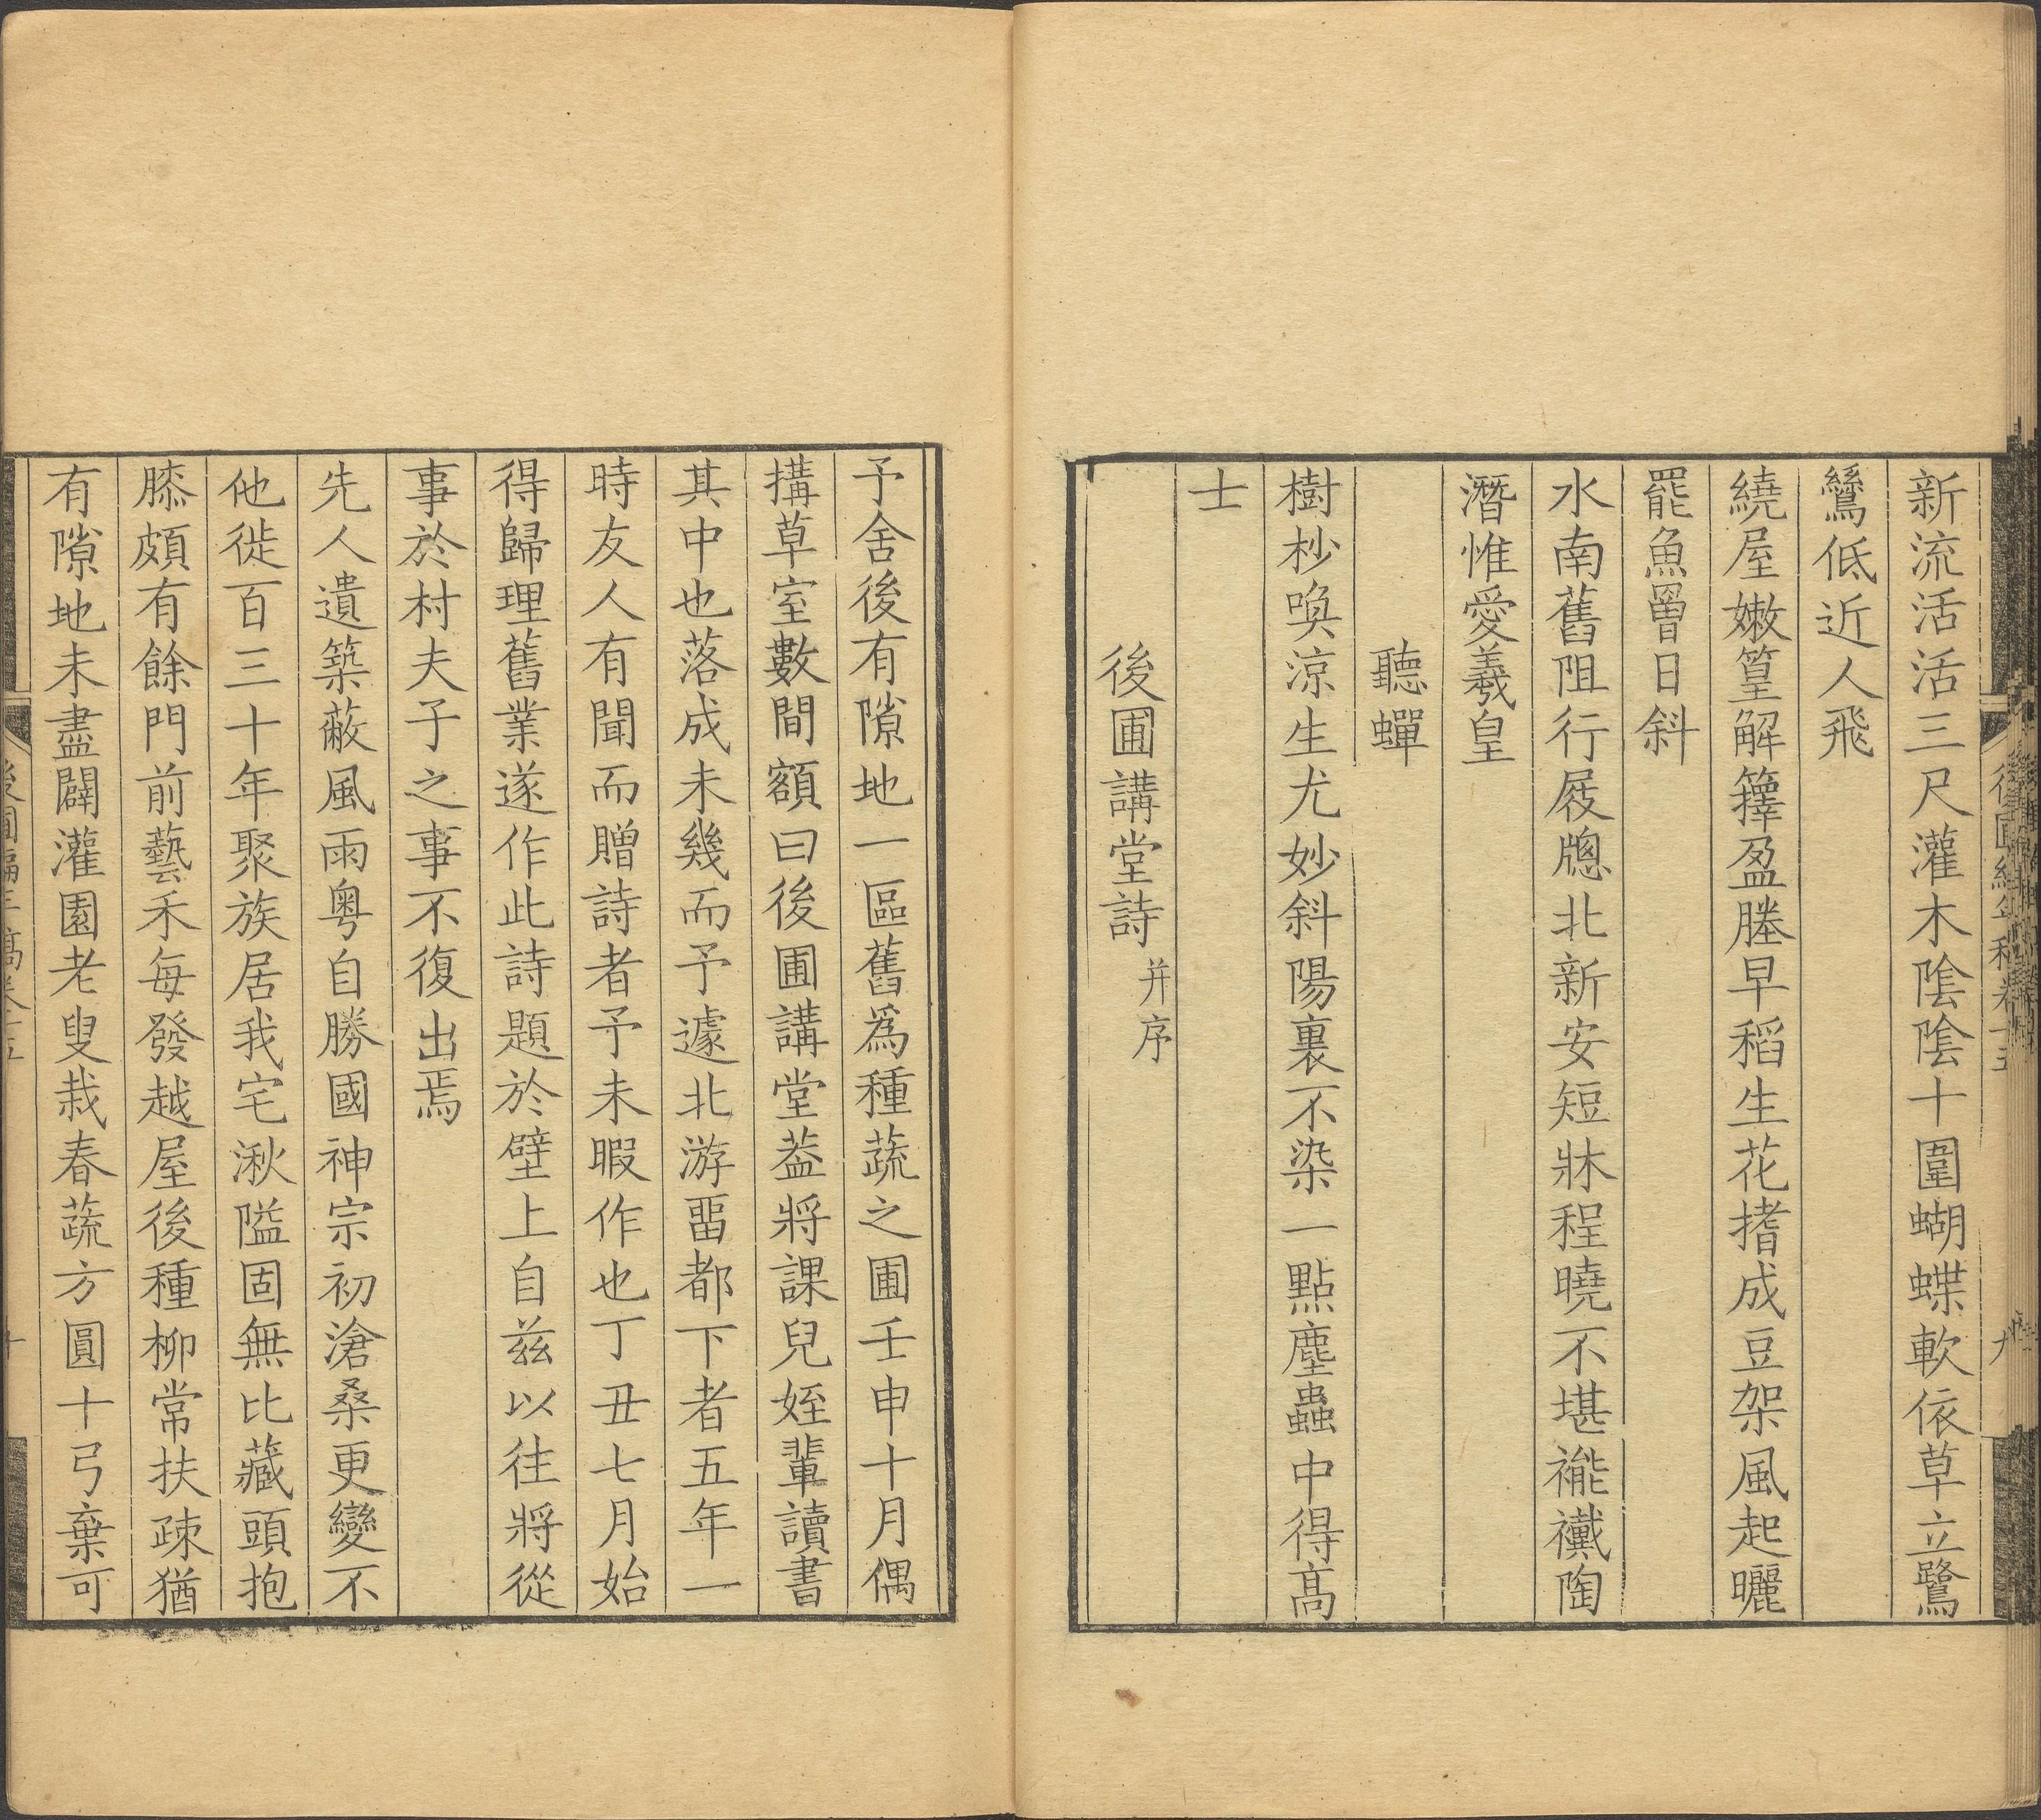 新流活活三尺灌木陰陰十圍蝴蝶軟依草立鷺
鷥低近人飛
繞屋嫩篁解籜盈塍早稻生花揩成豆架風起曬
罷魚罾日斜
水南舊阻行屐牕北新安短牀程曉不堪褦襶陶
潛惟愛羲皇
聽蟬
樹杪喚涼生尤妙斜陽裏不染一點塵蟲中得高
士
後圃講堂詩并序
予舍後有隙地一區舊爲種蔬之圃壬申十月偶
搆草室數間額曰後圃講堂葢將課兒姪輩讀書
其中也落成未幾而予遽北游畱都下者五年一
時友人有聞而贈詩者予未暇作也丁丑七月始
得歸理舊業遂作此詩題於壁上自兹以往將從
事於村夫子之事不復出焉
先人遺築蔽風雨粵自勝國神宗初滄桑更變不
他徙百三十年聚族居我宅湫隘固無比藏頭抱
膝頗有餘門前藝禾每發越屋後種柳常扶疎猶
有隙地未盡闢灌園老叟栽春蔬方圓十弓棄可
後圃編年稿卷十五
十
後圃編年稿卷十五
九